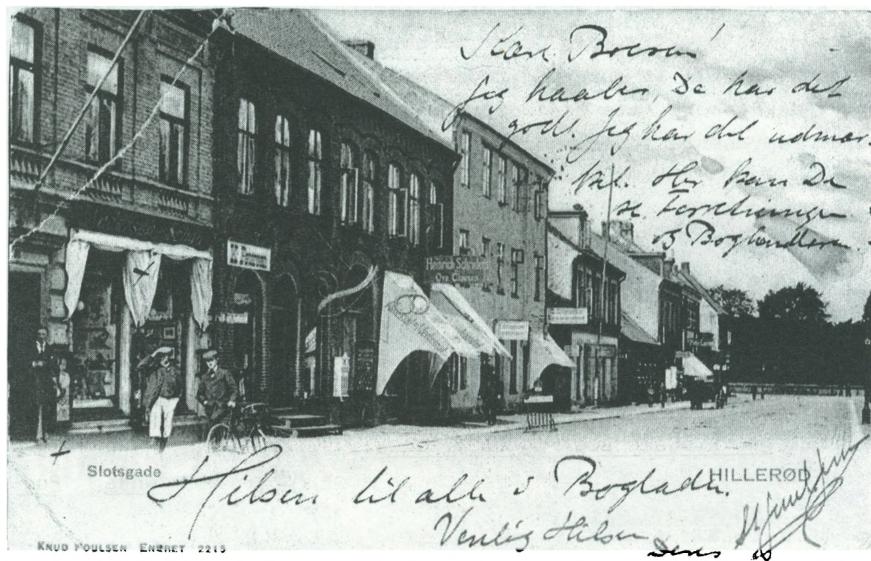 Kære Boesen!
Jeg haaber, De har det
godt. Jeg har det udmær-
ket. Her kan De
se Forretningen
og Boghandleren.
Heinrich
Slotsgade
HILLERØD
Hilsen til alle i Bogladen.
Venlig Hilsen
Deres
KNUD POULSEN ENERET 2213